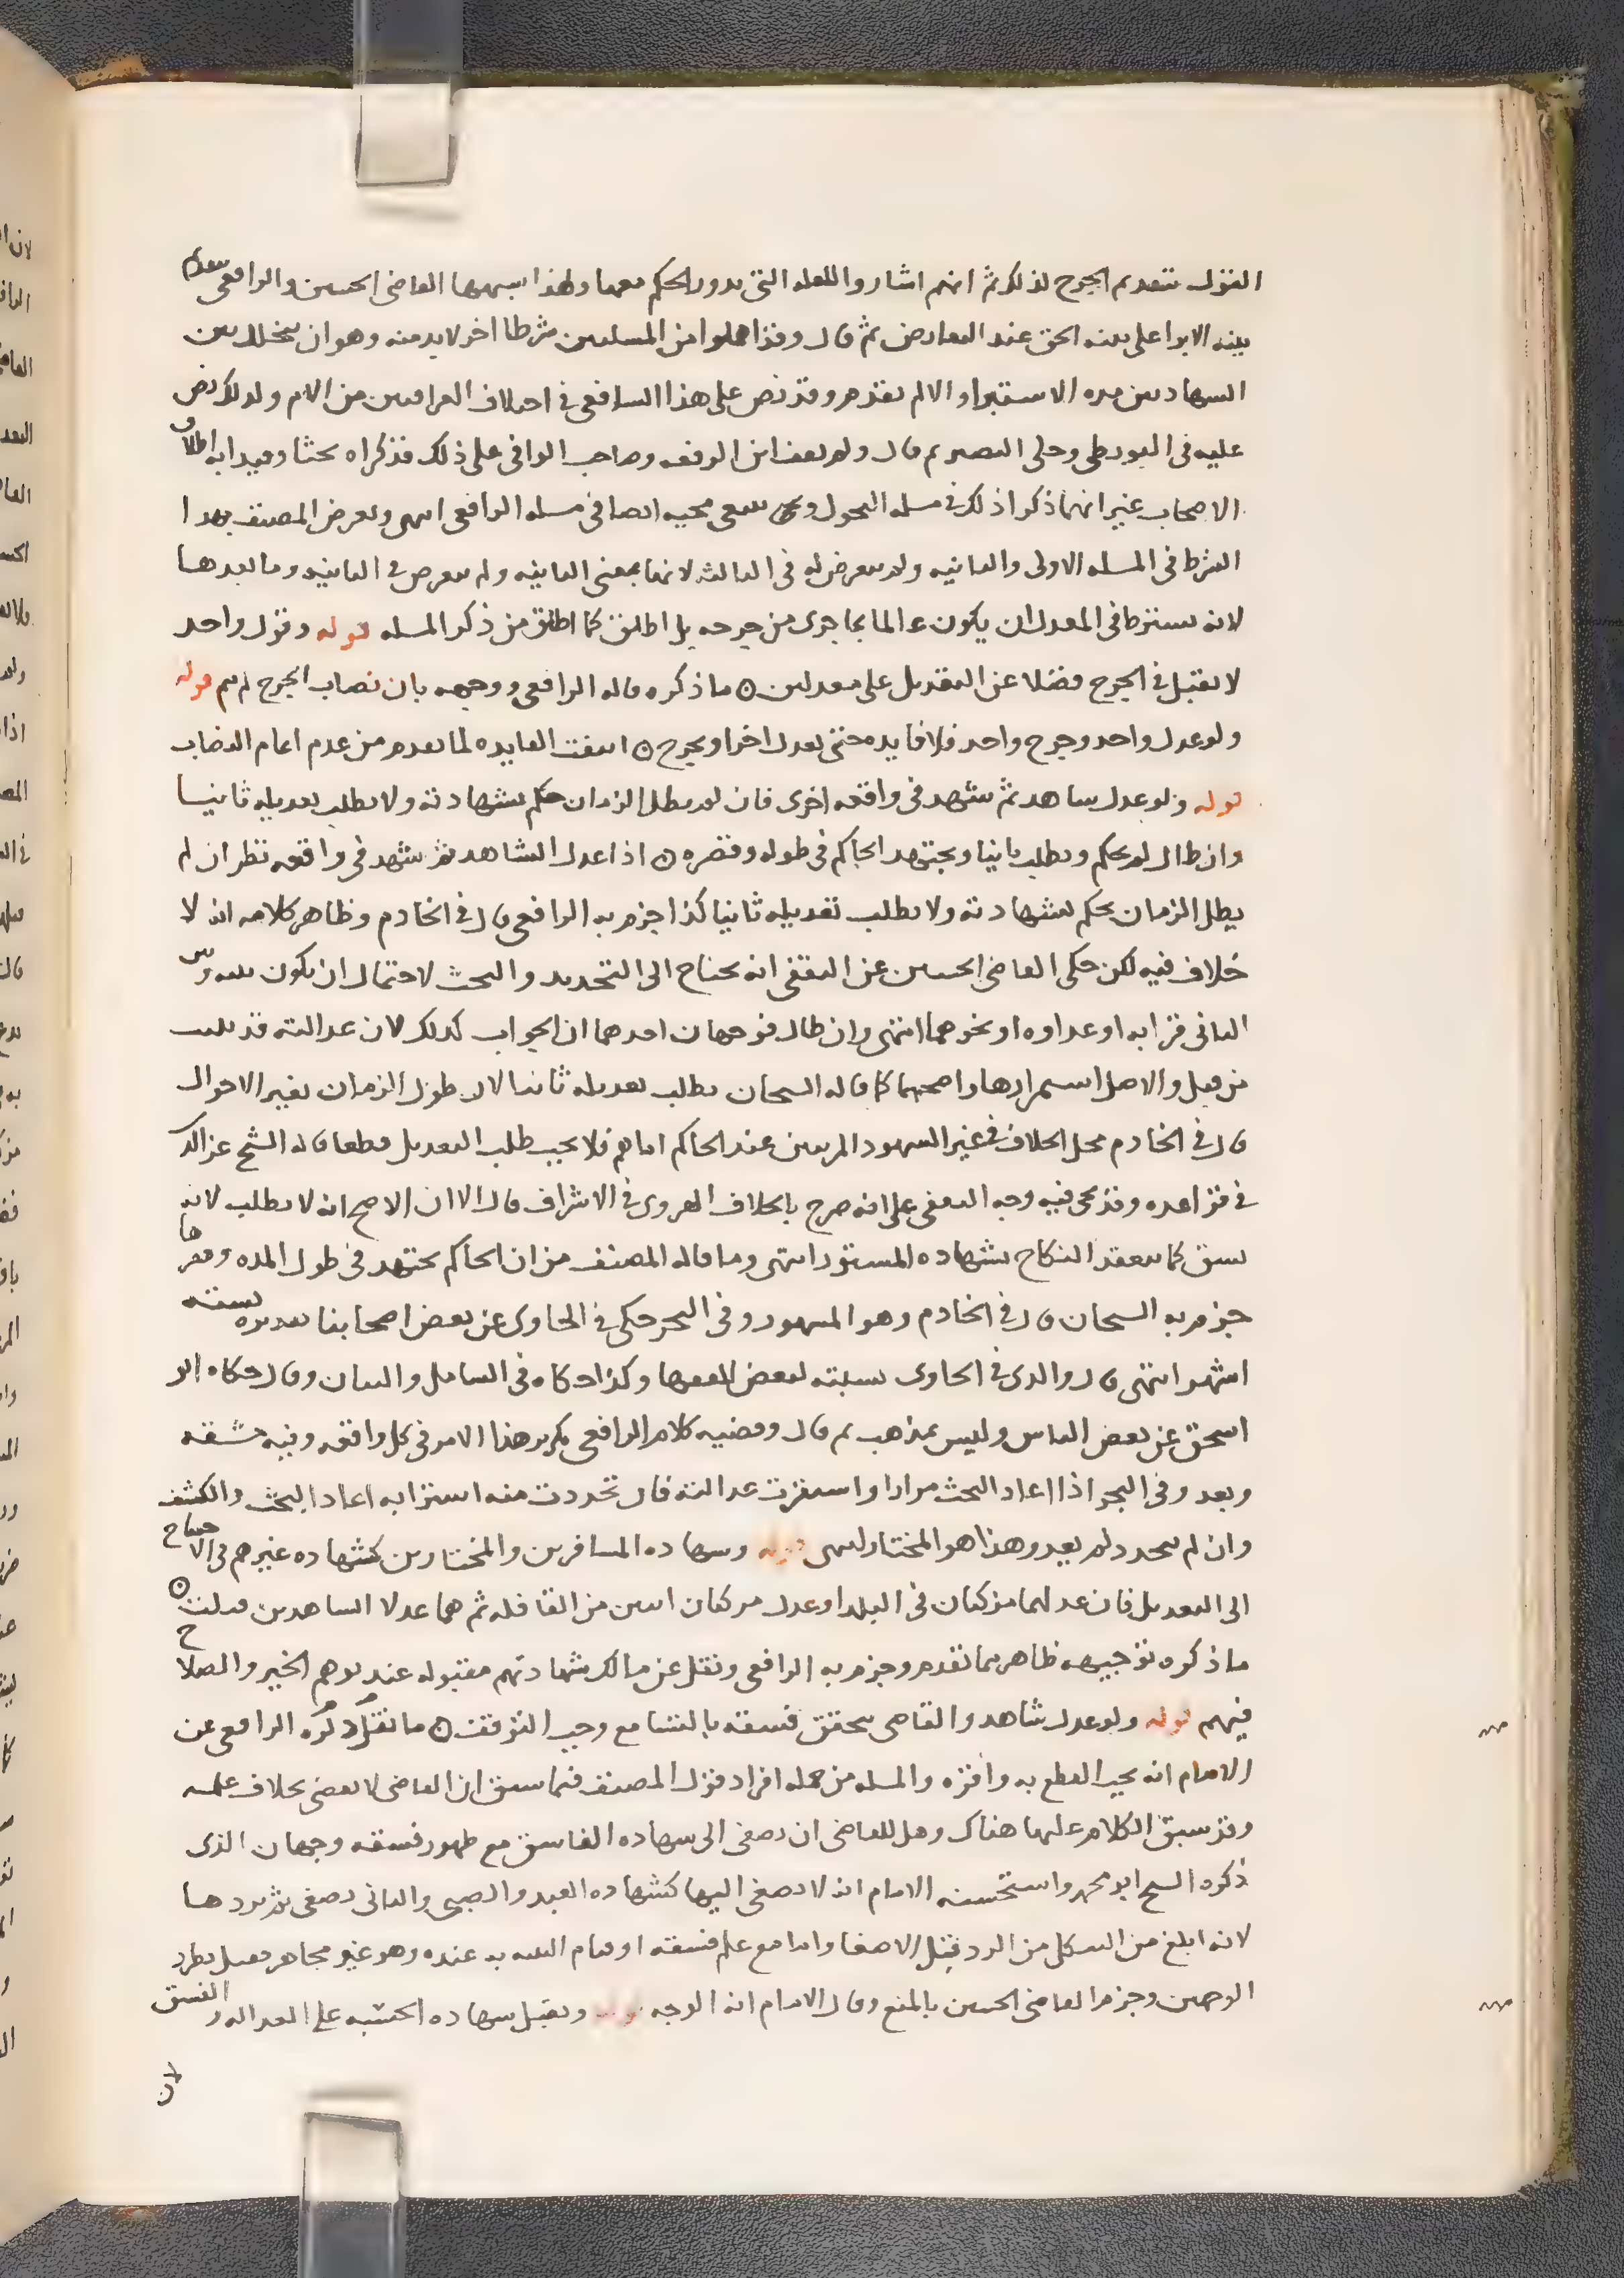 القول بتقديم الجرح لذلك ثم انهم اشاروا للعله التي يدور الحكم معها ولهذا القاضي الحسين والرافعي بتقديم
بينه الابرا على بينه الحق عند التعارض ثم قال وقد اهملوا من المسلتين شرطا اخر لابد منه وهو ان يتخلل بين
الشهادتين مده الاستبرا والا لم تقدم وقد نص على هذا الشافعي في اختلاف العراقيين من الام وكذلك نص
عليه في البويطي وحكى النص ثم قال ولم يقف ابن الرفعه وصاحب الوافي على ذلك فذكراه بحثا وقيدا به اطلاق
الاصحاب غير انهما ذكرا ذلك في مسله التحول وينبغي مجيه ايضا في مسله الرافعي انتهى وتعرض المصنف بهذا
الشرط في المسله الاولى والثانيه ولم يتعرض له في الثالثه لانها بمعنى الثانيه ولم يتعرض في الثانيه وما بعدها
لانه يشترط في المعدل ان يكون عالما بما جرى من جرحه بل اطلق كما اطلق من ذكر المسله قوله وقول واحد
لا يقبل في الجرح فضلا عن التقديم على معدلين ه ما ذكره قاله الرافعي ووجهه بان نصاب الجرح لم يتم قوله
ولو عدل واحد وجرح واحد فلا فايده حتى يعدل اخر او يجرح ه انتفت الفايده لما تقدم من عدم اتمام النصاب
قوله ولو عدل شاهد ثم شهد في واقعه اخرى فان لم يطل الزمان حكم بشهادته ولا يطلب تعديله ثانيا
وان طال لم يحكم ويطلب ثانيا ويجتهد الحاكم في طوله وقصره ه اذا عدل الشاهد ثم شهد في واقعه نظر ان لم
يطل الزمان يحكم بشهادته ولا يطلب تعديله ثانيا كذا جزم به الرافعي قال في الخادم وظاهر كلامه انه لا
خلاف فيه لكن حكى القاضي الحسين عن القفال انه يحتاج الى التجديد والبحث لاحتمال ان يكون بينه وبين
الثاني قرابه او عداوه او نحوهما انتهى وان طال فوجهان احدهما ان الجواب كذلك لان عدالته قد ثبتت
من قبل والاصل استمرارها واصحهما كما قاله الشيخان يطلب تعديله ثانيا لان طول الزمان يغير الاحوال
قال في الخادم محل الخلاف في غير الشهود المرتبين عند الحاكم اما هم فلا يجب طلب التعديل قطعا قاله الشيخ عز الدين
في قواعده وقد يجي فيه وجه على انه صرح بالخلاف الهروي في الاشراف قال الا ان الاصح انه لا يطلب لانه
يشق كما ينعقد النكاح بشهاده المستور انتهى وما قاله المصنف من ان الحاكم يجتهد في طول المده وقصرها
جزم به الشيخان قال في الخادم وهو المشهور وفي البحر حكى في الحاوي عن بعض اصحابنا تقديره بسته
اشهر انتهى قال والذي في الحاوي نسبته لبعض الفقها وكذا حكاه في الشامل والبيان وقال حكاه ابو
اسحق عن بعض الناس وليس بمذهب ثم قال وقضيه كلام الرافعي تكرير هذا الامر في كل واقعه وفيه مشقه
وبعد وفي البحر اذا اعاد البحث مرارا واستقرت عدالته فان تجددت منه استرابه اعاد البحث والكشف
وان لم يتجدد لم يعد وهذا هو المختار انتهى قوله وشهاده المسافرين والمختارين كشهاده غيرهم في الاحتياج
الى التعديل فان عدلهما مزكيان في البلد او عدل مزكيان اثنين من القافله ثم هما عدلا الشاهدين قبلت ه
ما ذكره توجيهه ظاهر مما تقدم وجزم به الرافعي ونقل عن مالك شهادتهم مقبوله عند توهم الخير والصلاح
فيهم قوله ولو عدل شاهد والقاضي يتحقق فسقه بالتسامع وجب التوقف ه ما نقل ذكره الرافعي عن
الامام انه يجب القطع به واقره والمسله من جمله افراد قول المصنف فيما سبق ان القاضي لا يقضي بخلاف علمه
وقد سبق الكلام عليها هناك وهل للقاضي ان يصغي الى شهاده الفاسق مع ظهور فسقه وجهان الذي
ذكره الشيخ ابو محمد واستحسنه الامام انه لا يصغي اليها كشهاده العبد والصبي والثاني يصغي ثم يردها
لانه ابلغ من التنكيل من الرد قبل الاصغا واما مع علم فسقه او قيام البينه به عنده وهو غير مجاهر فقيل بطرد
الوجهين وجزم القاضي الحسين بالمنع وقال الامام انه الوجه قوله وتقبل شهاده الحسبه على العداله والفسق
لان